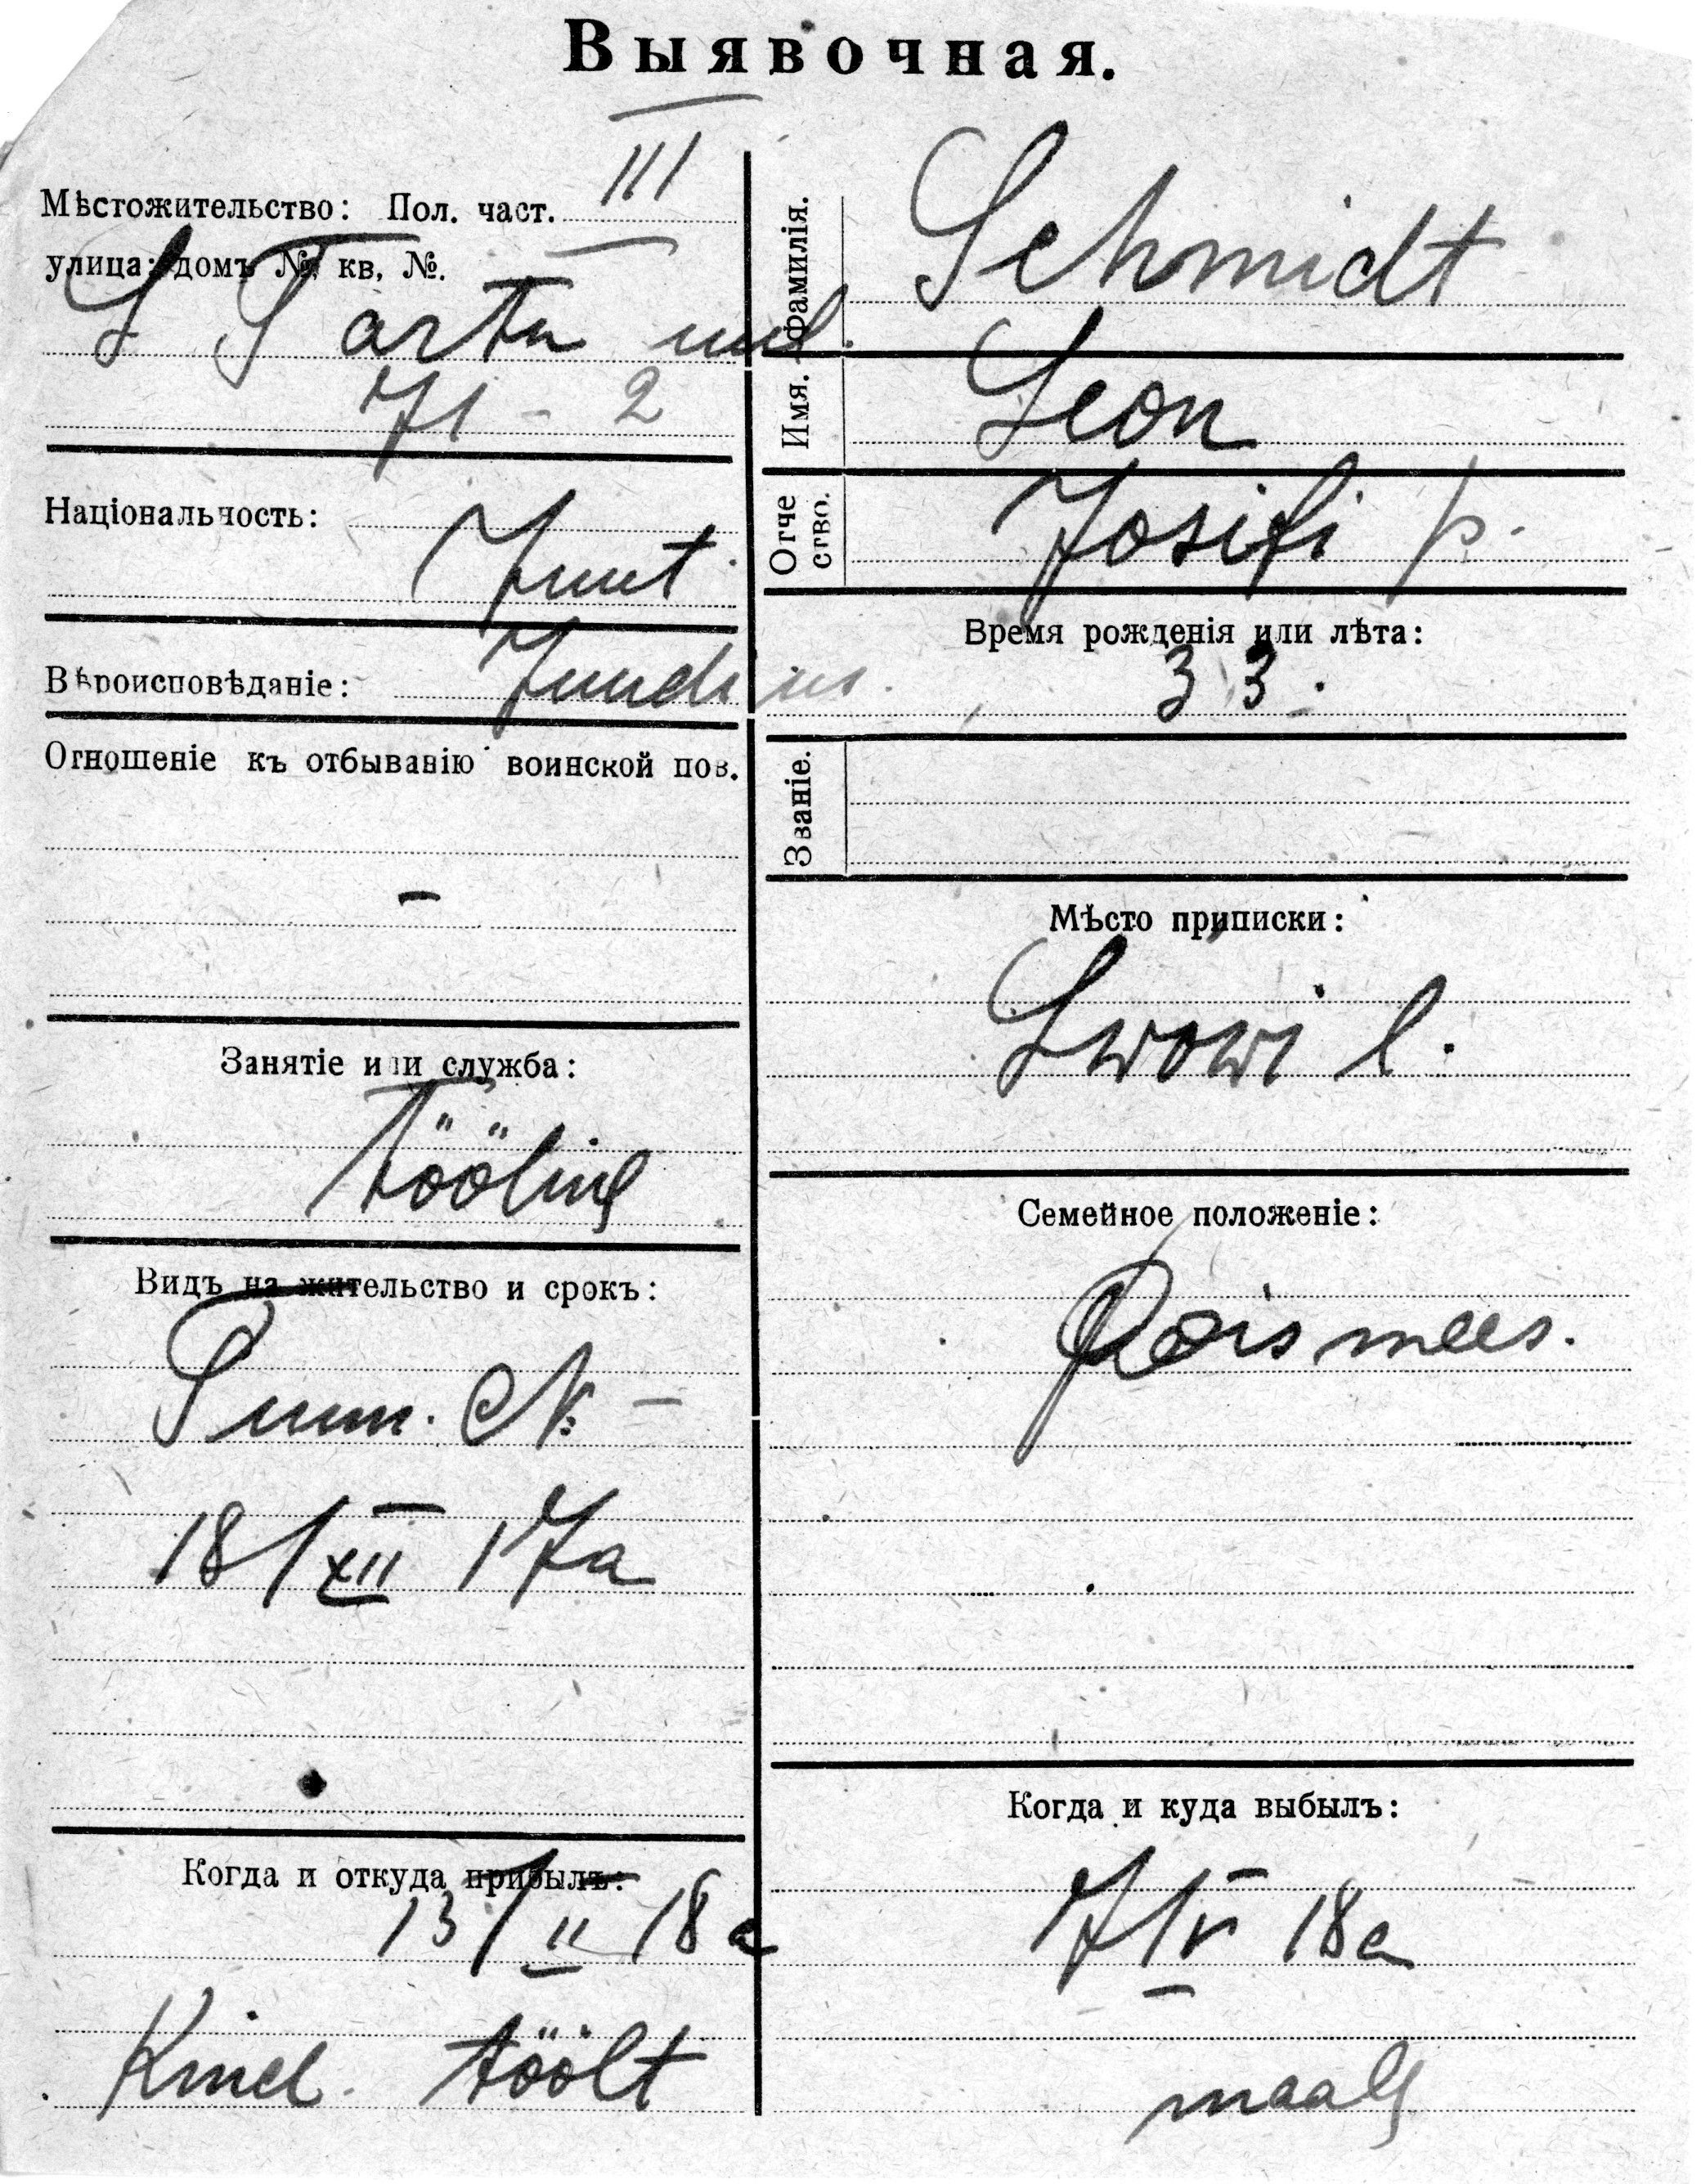 Выявочная.
Мѣстожительство: Пол. част. III
улица: домъ № кв. №.
S Tartu mnt.
71 - 2
Національность: Juut
Вѣроисповѣданіе: Juudi us.
Отношеніе къ отбыванію воинской пов.
—
Занятіе или служба:
Tööling
Видъ на жительство и срокъ:
Tunn. № —
18/XII 17a
Когда и откуда прибылъ:
13/II 18a
Kind. töölt
Фамилія. Schmidt
Имя. Leon
Отчество. Josifi p.
Время рожденія или лѣта:
33.
Званіе.
Мѣсто приписки:
Lwowi l.
Семейное положеніе:
Poismees.
Когда и куда выбылъ:
7/V 18a
maale